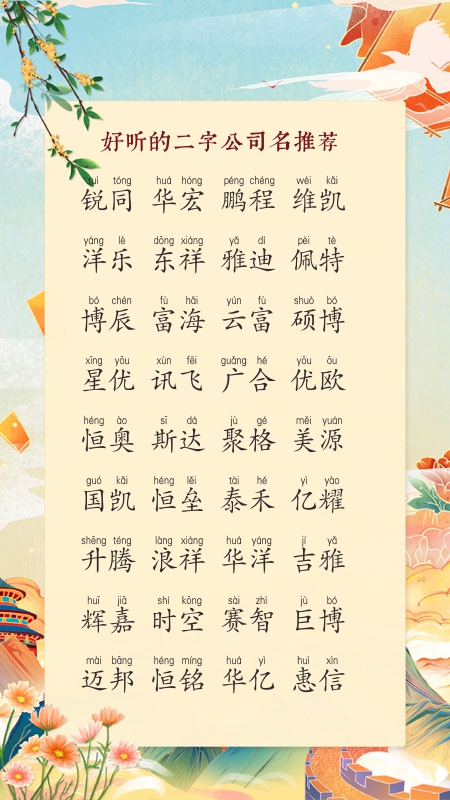 好听的二字公司名推荐
ruì tóng huá hóng péng chéng wéi kǎi
锐同 华宏 鹏程 维凯
yáng lè dōng xiáng yǎ dí pèi tè
洋乐 东祥 雅迪 佩特
bó chén fù hǎi yún fù shuò bó
博辰 富海 云富 硕博
xīng yōu xùn fēi guǎng hé yōu ōu
星优 讯飞 广合 优欧
héng ào sī dá jù gé měi yuán
恒奥 斯达 聚格 美源
guó kǎi héng lěi tài hé yì yào
国凯 恒垒 泰禾 亿耀
shēng téng làng xiáng huá yáng jí yǎ
升腾 浪祥 华洋 吉雅
huī jiā shí kōng sài zhì jù bó
辉嘉 时空 赛智 巨博
mài bāng héng míng huá yì huì xìn
迈邦 恒铭 华亿 惠信